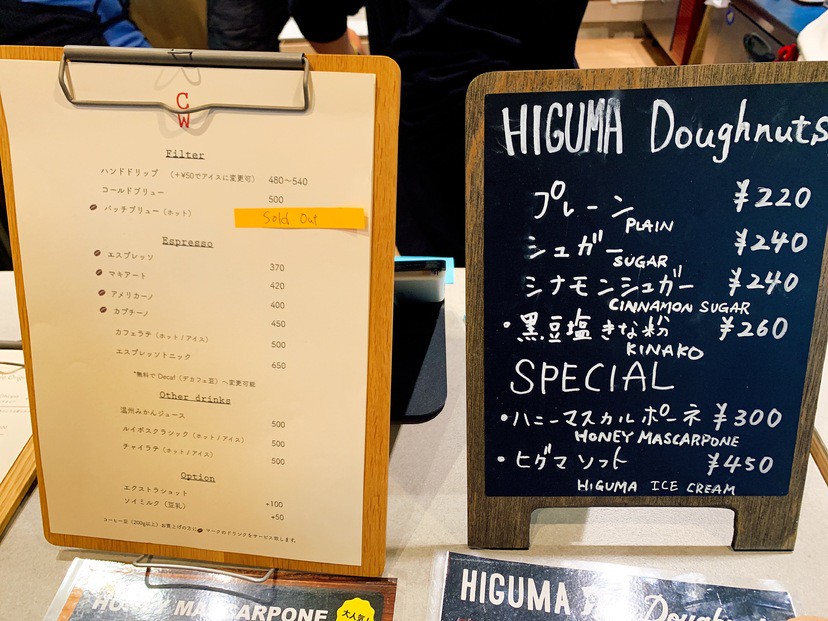 CW
Filter
ハンドドリップ （＋¥50でアイスに変更可） 480〜540
コールドブリュー 500
バッチブリュー（ホット） Sold Out
Espresso
エスプレッソ 370
マキアート 420
アメリカーノ 400
カプチーノ 450
カフェラテ（ホット/アイス） 500
エスプレッソトニック 650
*無料で Decaf（デカフェ豆）へ変更可能
Other drinks
温州みかんジュース 500
ルイボスクラシック（ホット/アイス） 500
チャイラテ（ホット/アイス） 500
Option
エクストラショット +100
ソイミルク（豆乳） +50
コーヒー豆（200g以上）お買上げの方に マークのドリンクをサービス致します。
HIGUMA Doughnuts
プレーン ¥220
PLAIN
シュガー ¥240
SUGAR
シナモンシュガー ¥240
CINNAMON SUGAR
・黒豆塩きな粉 ¥260
KINAKO
SPECIAL
・ハニーマスカルポーネ ¥300
HONEY MASCARPONE
・ヒグマソフト ¥450
HIGUMA ICE CREAM
HONEY MASCARPONE
大人気!
HIGUMA Doughnuts